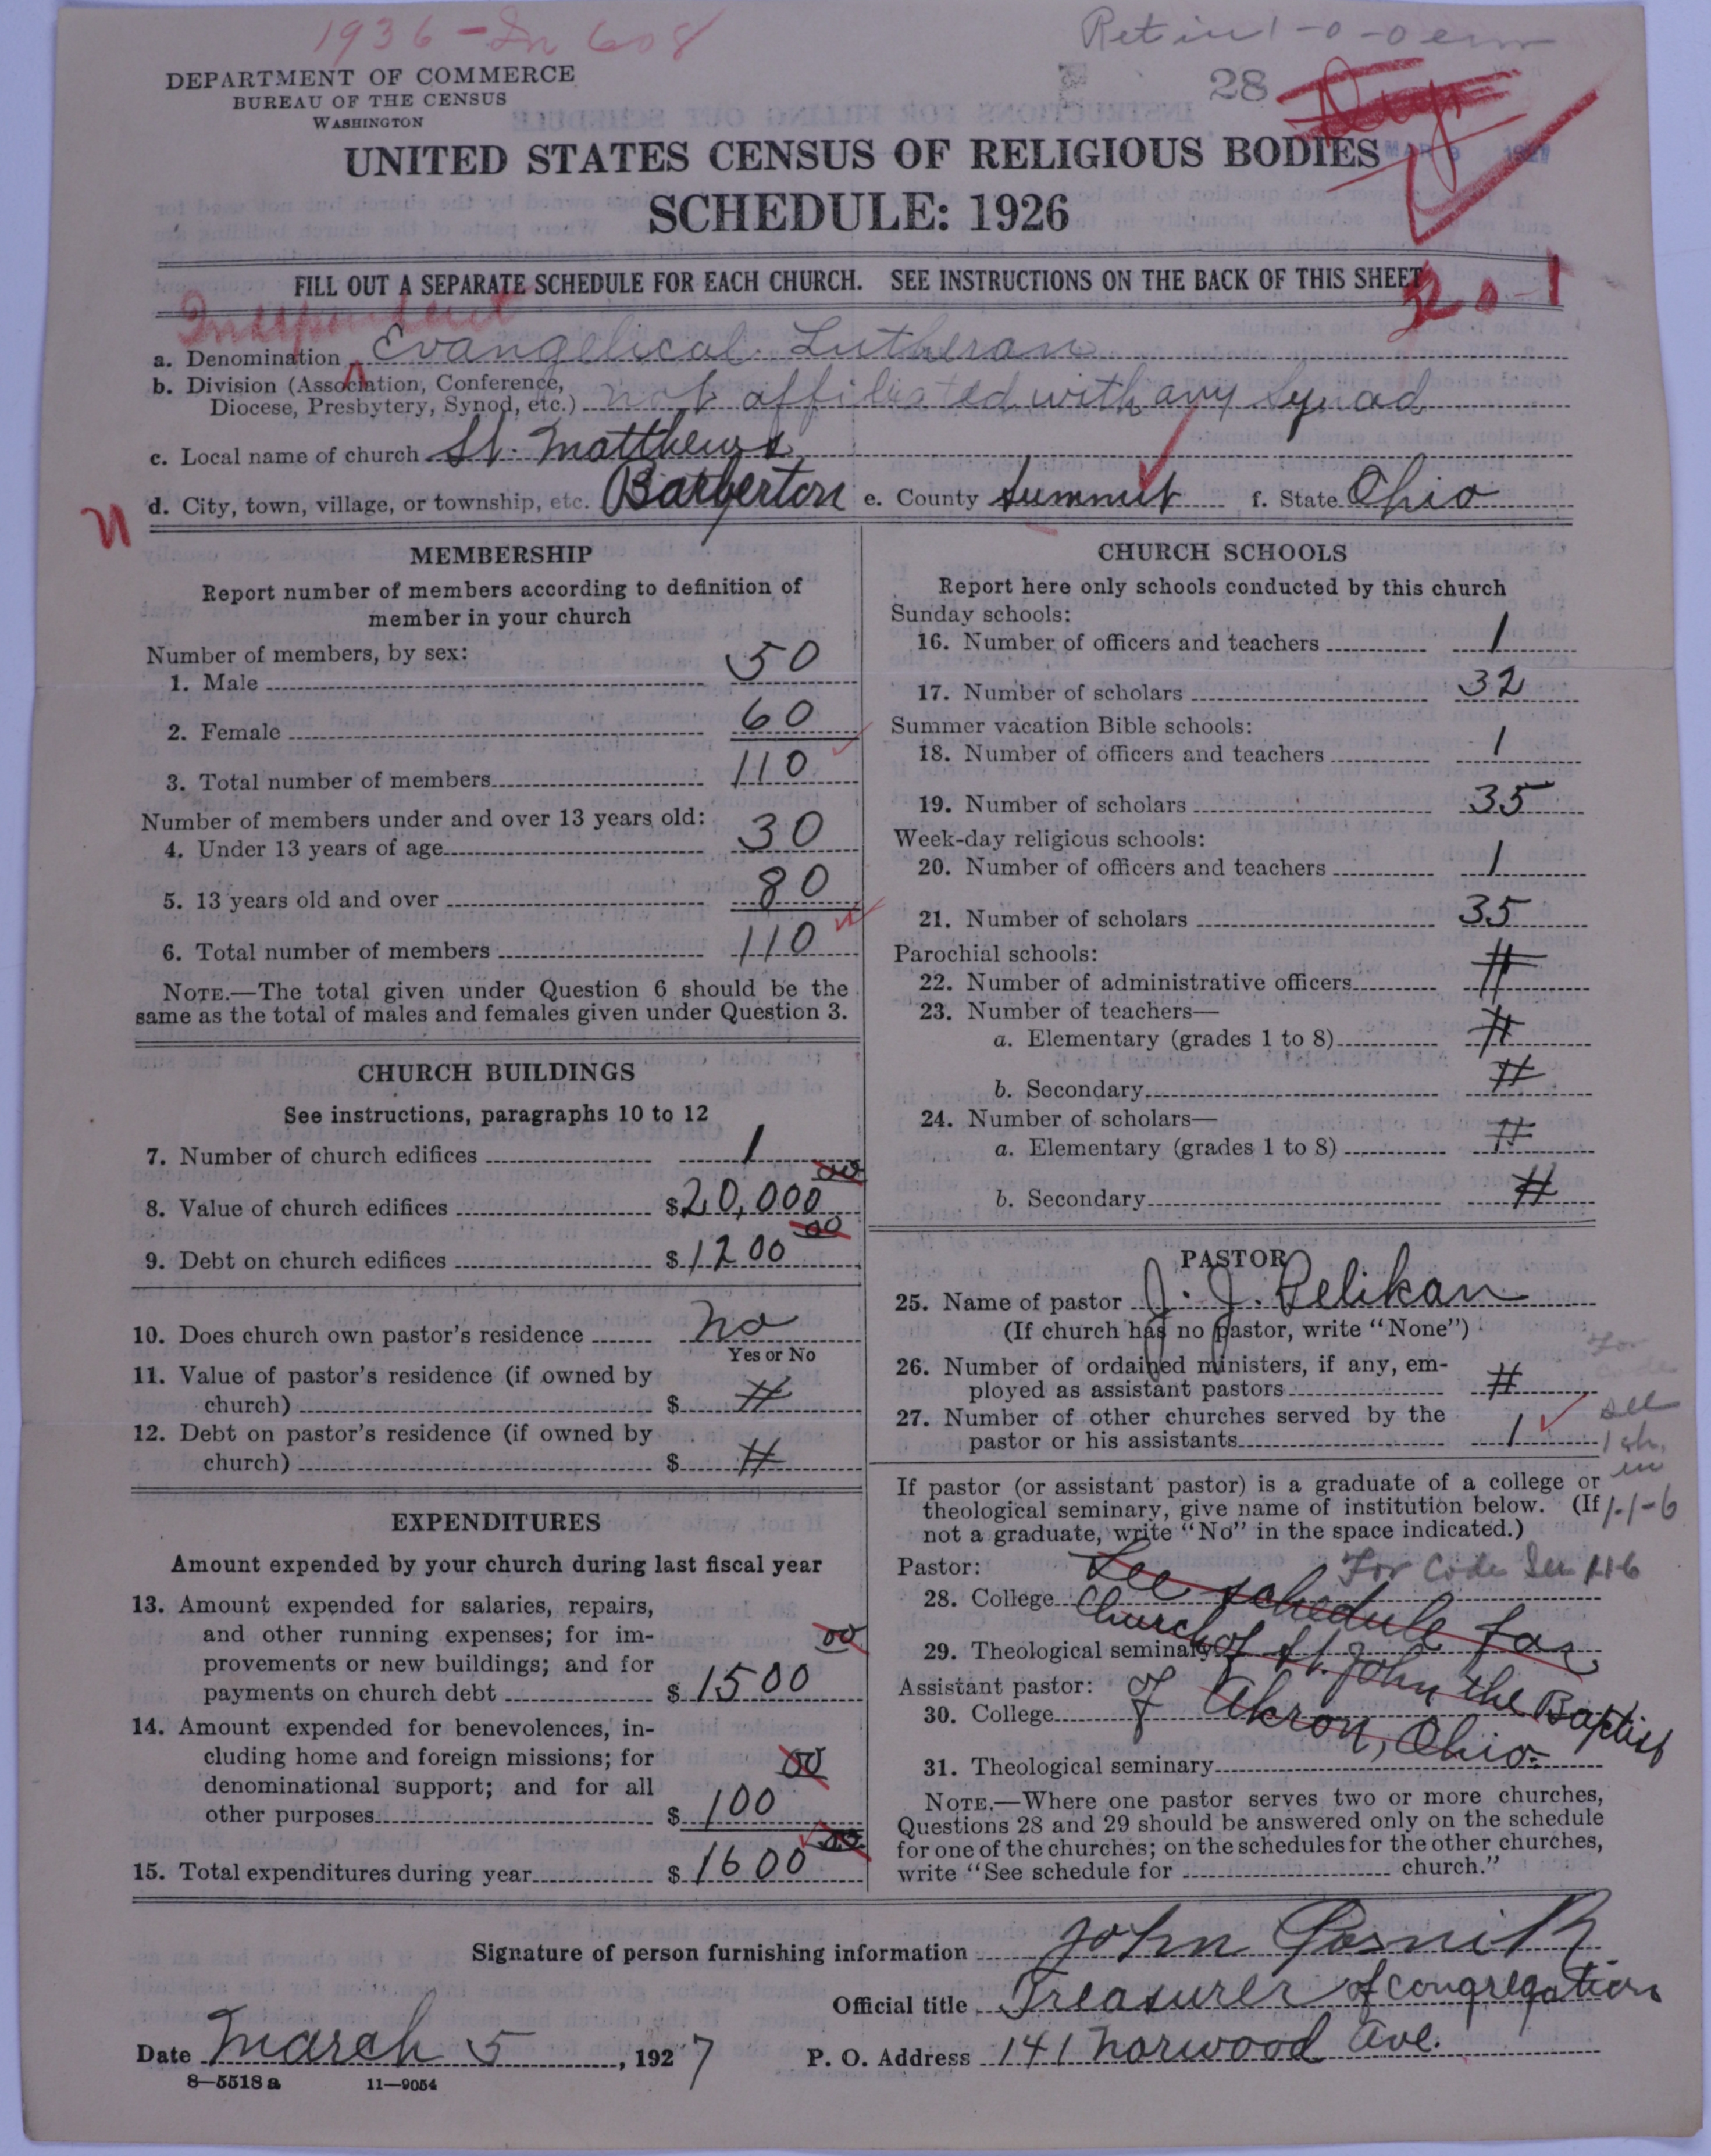 1936 - In 608
Ret in 1-0-0
DEPARTMENT OF COMMERCE
BUREAU OF THE CENSUS
WASHINGTON
28
MAR 9
UNITED STATES CENSUS OF RELIGIOUS BODIES
SCHEDULE: 1926
FILL OUT A SEPARATE SCHEDULE FOR EACH CHURCH. SEE INSTRUCTIONS ON THE BACK OF THIS SHEET
20-1
Independent
a. Denomination Evangelical Lutheran
b. Division (Association, Conference,
Diocese, Presbytery, Synod, etc.) not affiliated with any Synod
c. Local name of church St. Matthews
d. City, town, village, or township, etc. Barberton e. County Summit f. State Ohio
MEMBERSHIP
Report number of members according to definition of
member in your church
Number of members, by sex:
1. Male 50
2. Female 60
3. Total number of members 110
Number of members under and over 13 years old:
4. Under 13 years of age 30
5. 13 years old and over 80
6. Total number of members 110
NOTE.—The total given under Question 6 should be the
same as the total of males and females given under Question 3.
CHURCH BUILDINGS
See instructions, paragraphs 10 to 12
7. Number of church edifices 1
8. Value of church edifices $20,000 00
9. Debt on church edifices $1200 00
10. Does church own pastor's residence no
Yes or No
11. Value of pastor's residence (if owned by
church) $ #
12. Debt on pastor's residence (if owned by
church) $ #
EXPENDITURES
Amount expended by your church during last fiscal year
13. Amount expended for salaries, repairs,
and other running expenses; for im-
provements or new buildings; and for
payments on church debt $1500 00
14. Amount expended for benevolences, in-
cluding home and foreign missions; for
denominational support; and for all
other purposes $100 00
15. Total expenditures during year $1600 00
CHURCH SCHOOLS
Report here only schools conducted by this church
Sunday schools:
16. Number of officers and teachers 1
17. Number of scholars 32
Summer vacation Bible schools:
18. Number of officers and teachers 1
19. Number of scholars 35
Week-day religious schools:
20. Number of officers and teachers 1
21. Number of scholars 35
Parochial schools:
22. Number of administrative officers #
23. Number of teachers—
a. Elementary (grades 1 to 8) #
b. Secondary #
24. Number of scholars—
a. Elementary (grades 1 to 8) #
b. Secondary #
PASTOR
25. Name of pastor J. J. Pelikan
(If church has no pastor, write "None")
26. Number of ordained ministers, if any, em-
ployed as assistant pastors #
27. Number of other churches served by the
pastor or his assistants 1
For code see 1 ch. in 1-1-6
If pastor (or assistant pastor) is a graduate of a college or
theological seminary, give name of institution below. (If
not a graduate, write "No" in the space indicated.)
Pastor: For Code See 1-1-6
28. College See schedule for
29. Theological seminary Church of St. John the Baptist
Assistant pastor:
30. College of Akron, Ohio.
31. Theological seminary
NOTE.—Where one pastor serves two or more churches,
Questions 28 and 29 should be answered only on the schedule
for one of the churches; on the schedules for the other churches,
write "See schedule for church."
Signature of person furnishing information John Posnik
Official title Treasurer of congregation
Date March 5, 1927 P. O. Address 141 Norwood Ave.
8—5518 a 11—9054